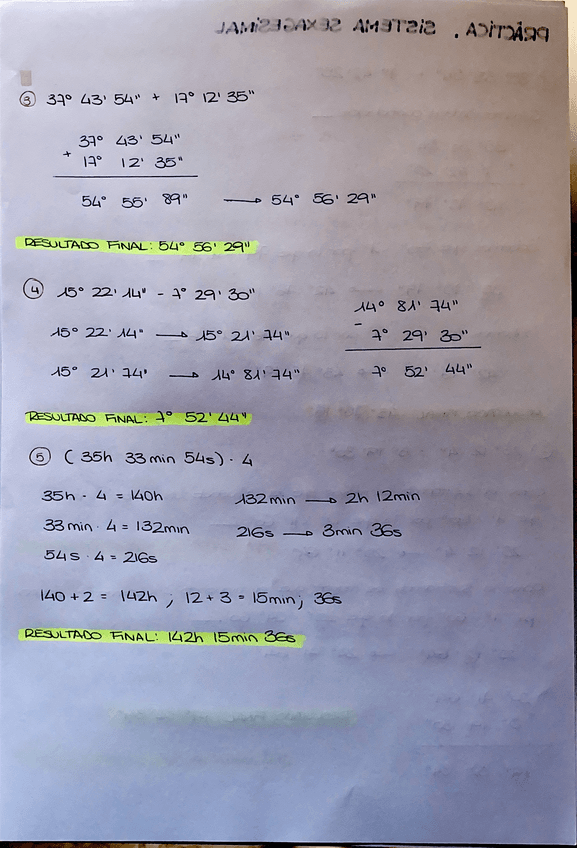 PRÁCTICA. SISTEMA SEXAGESIMAL
③ 37° 43' 54" + 17° 12' 35"
37° 43' 54"
+ 17° 12' 35"
54° 55' 89" → 54° 56' 29"
RESULTADO FINAL: 54° 56' 29"
④ 15° 22' 14" - 7° 29' 30"
14° 81' 74"
15° 22' 14" → 15° 21' 74"
- 7° 29' 30"
15° 21' 74" → 14° 81' 74"
7° 52' 44"
RESULTADO FINAL: 7° 52' 44"
⑤ (35h 33min 54s) · 4
35h · 4 = 140h
132min → 2h 12min
33min · 4 = 132min
216s → 3min 36s
54s · 4 = 216s
140 + 2 = 142h ; 12 + 3 = 15min; 36s
RESULTADO FINAL: 142h 15min 36s